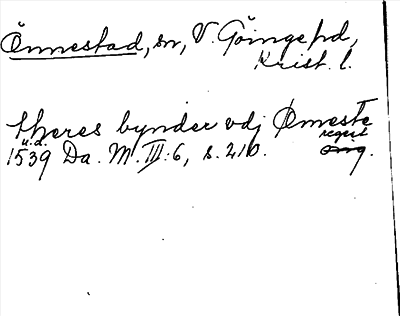 Önnestad, sn, V. Göinge hd,
Krist. l.
theres bynder vdj Ømeste
u.d. regest
1539 Da. M. III:6, s. 210. orig.